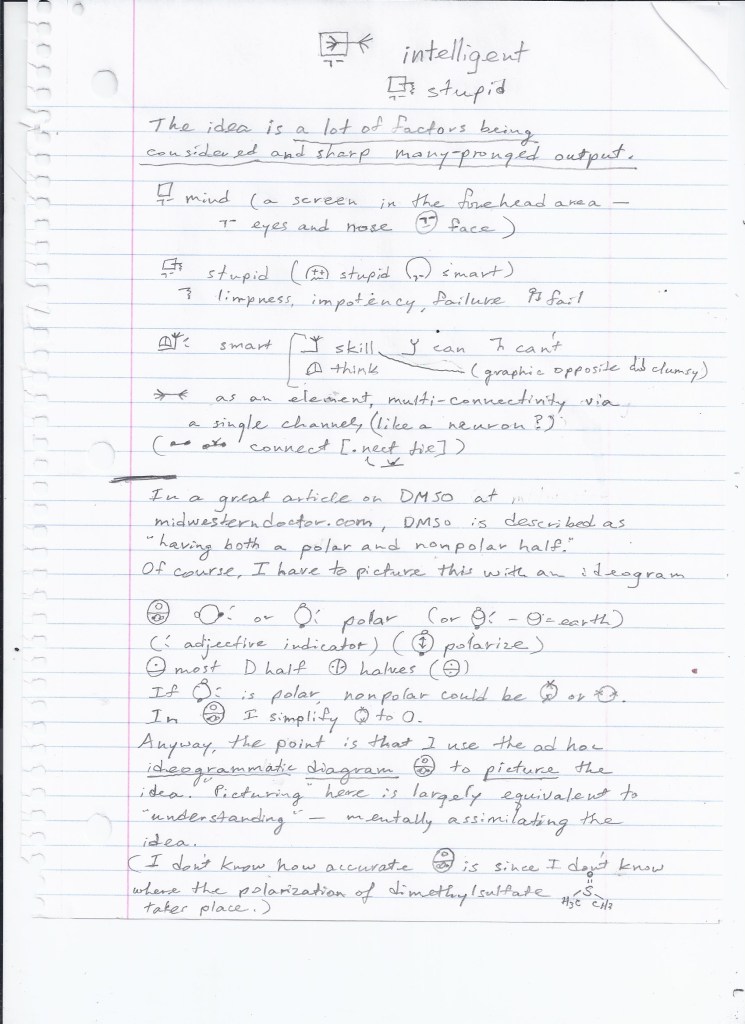 intelligent
stupid
The idea is a lot of factors being
considered and sharp many-pronged output.
mind (a screen in the forehead area —
eyes and nose face)
stupid ( stupid smart)
limpness, impotency, failure fail
smart skill can can't
think (graphic opposite clumsy)
as an element, multi-connectivity via
a single channel, (like a neuron?)
( connect [.nect tie])
In a great article on DMSO at
midwesterndoctor.com, DMSO is described as
"having both a polar and nonpolar half."
Of course, I have to picture this with an ideogram
or polar (or - = earth)
(: adjective indicator) ( polarize)
most D half halves ( )
If : is polar, nonpolar could be or .
In I simplify to O.
Anyway, the point is that I use the ad hoc
ideogrammatic diagram to picture the
idea. "Picturing" here is largely equivalent to
"understanding" — mentally assimilating the
idea.
(I don't know how accurate is since I don't know
where the polarization of dimethylsulfate
takes place.)
O
S
H3C CH3